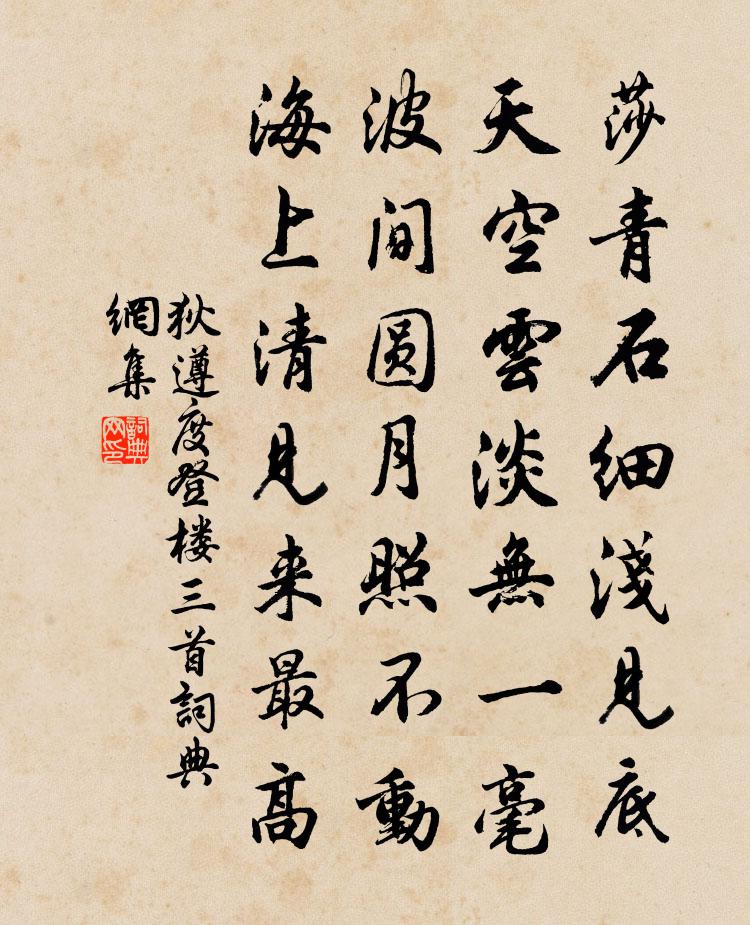 莎青石细淺見底
天空雲淡無一毫
波间圆月照不動
海上清見来最高
狄遵度登楼三首詞典
網集
詞典
网印